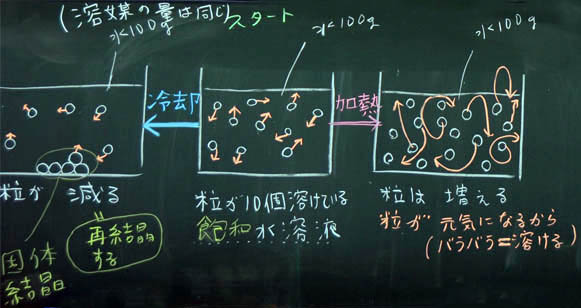 (溶媒の量は同じ)
スタート
水100g
水100g
水100g
冷却
加熱
粒が 減る
再結晶
する
固体
結晶
粒が10個溶けている
飽和水溶液
粒は 増える
粒が 元気になるから
(バラバラ=溶ける)